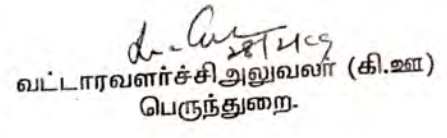 வட்டாரவளர்ச்சி அலுவலர் (கி.ஊ)
பெருந்துறை.